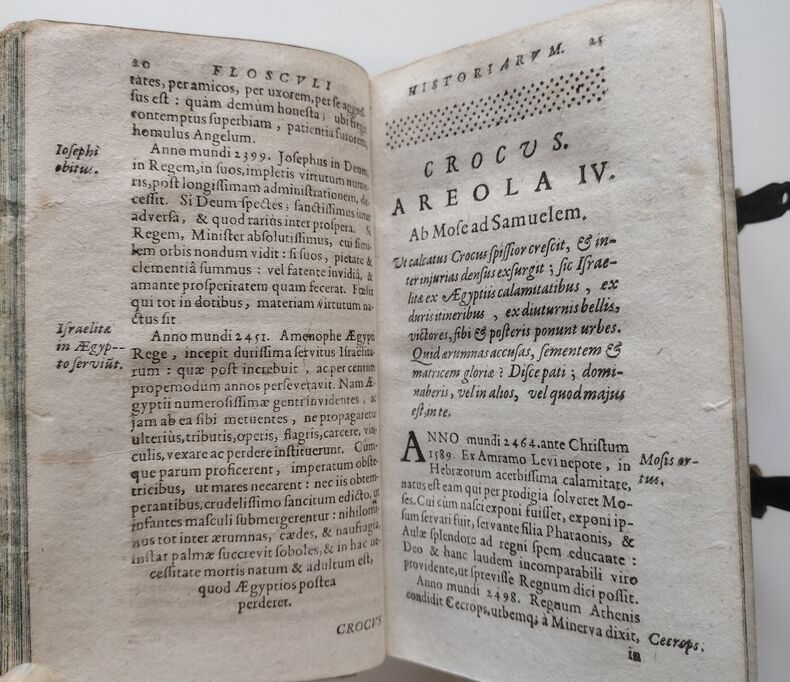 20 FLOSCVLI
tates, per amicos, per uxorem, per se aggres
sus est : quàm demùm honesta ; ubi fregit
contemptus superbiam, patientia furorem,
homulus Angelum.
Iosephi
obitus.
Anno mundi 2399. Josephus in Deum,
in Regem, in suos, impletis virtutum nume-
ris, post longissimam administrationem, de-
cessit. Si Deum spectes ; sanctissimus inter
adversa, & quod rarius inter prospera. Si
Regem, Minister absolutissimus, cui simi-
lem orbis nondum vidit : si suos, pietate &
clementiâ summus : vel fatente invidiâ, &
amante prosperitatem quam fecerat. Fœlix
qui tot in dotibus, materiam virtutum na-
ctus sit
Israelitæ
in Ægyp--
to serviũt.
Anno mundi 2451. Amenophe Ægypti
Rege, incepit durissima servitus Israelita-
rum : quæ post increbuit , ac per centum
propemodum annos perseveravit. Nam Æ-
gyptii numerosissimæ genti invidentes, ac
jam ab ea sibi metuentes , ne propagaretur
ulterius, tributis, operis, flagris, carcere, vin-
culis, vexare ac perdere instituerunt. Cùm-
que parum proficerent, imperatum obste-
tricibus, ut mares necarent : nec iis obtem-
perantibus, crudelissimo sancitum edicto, ut
infantes masculi submergerentur : nihilomi-
nus tot inter ærumnas, cædes, & naufragia,
instar palmæ succrevit soboles, & in hac ne-
cessitate mortis natum & adultum est,
quod Ægyptios postea
perderet.
CROCVS
HISTORIARVM. 21
CROCUS.
AREOLA IV.
Ab Mose ad Samuelem.
Ut calcatus Crocus spissior crescit, & in-
ter injurias densus exsurgit ; sic Israe-
litæ ex Ægyptiis calamitatibus , ex
duris itineribus , ex diuturnis bellis,
victores, sibi & posteris ponunt urbes.
Quid ærumnas accusas, sementem &
matricem gloriæ ? Disce pati ; domi-
naberis, vel in alios, vel quod majus
est, in te.
ANNO mundi 2464. ante Christum
1589. Ex Amramo Levi nepote, in
Hebræorum acerbissima calamitate,
natus est eam qui per prodigia solveret Mo-
ses. Cui cùm nasci exponi fuisset, exponi ip-
sum servari fuit, servante filia Pharaonis, &
Aulæ splendore ad regni spem educante :
Deo & hanc laudem incomparabili viro
providente, ut sprevisse Regnum dici possit.
Mosis or-
tus.
Anno mundi 2498. Regnum Athenis
condidit Cecrops, urbemq; à Minerva dixit,
Cecrops.
in